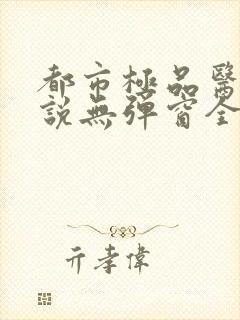 都市極品醫
說無彈窗全
亓孝偉